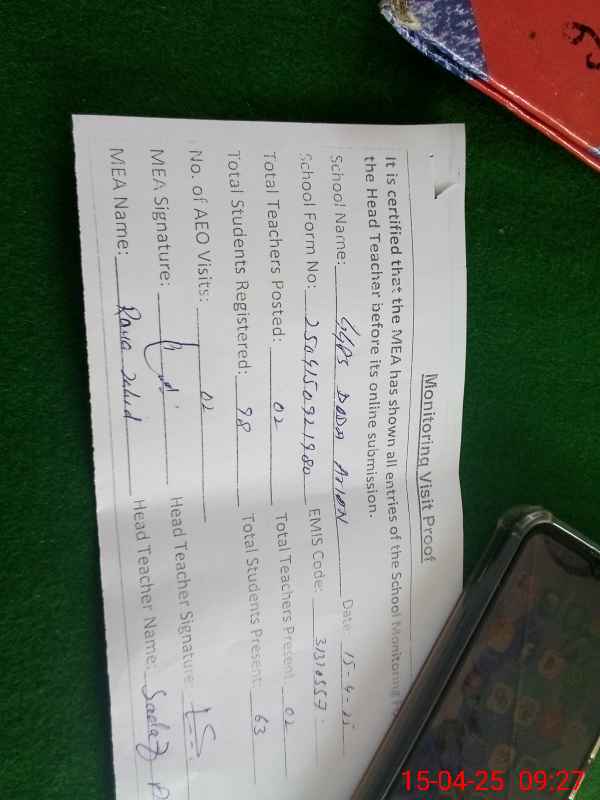 Monitoring Visit Proof
It is certified that the MEA has shown all entries of the School Monitoring
the Head Teacher before its online submission.
School Name: GGPS DODA Date: 15-4-25
School Form No: 2504150921980 EMIS Code:
Total Teachers Posted: 02 Total Teachers Present: 02
Total Students Registered: 98 Total Students Present: 63
No. of AEO Visits: 02
MEA Signature: Head Teacher Signature:
MEA Name: Rana Head Teacher Name:
15-04-25 09:27